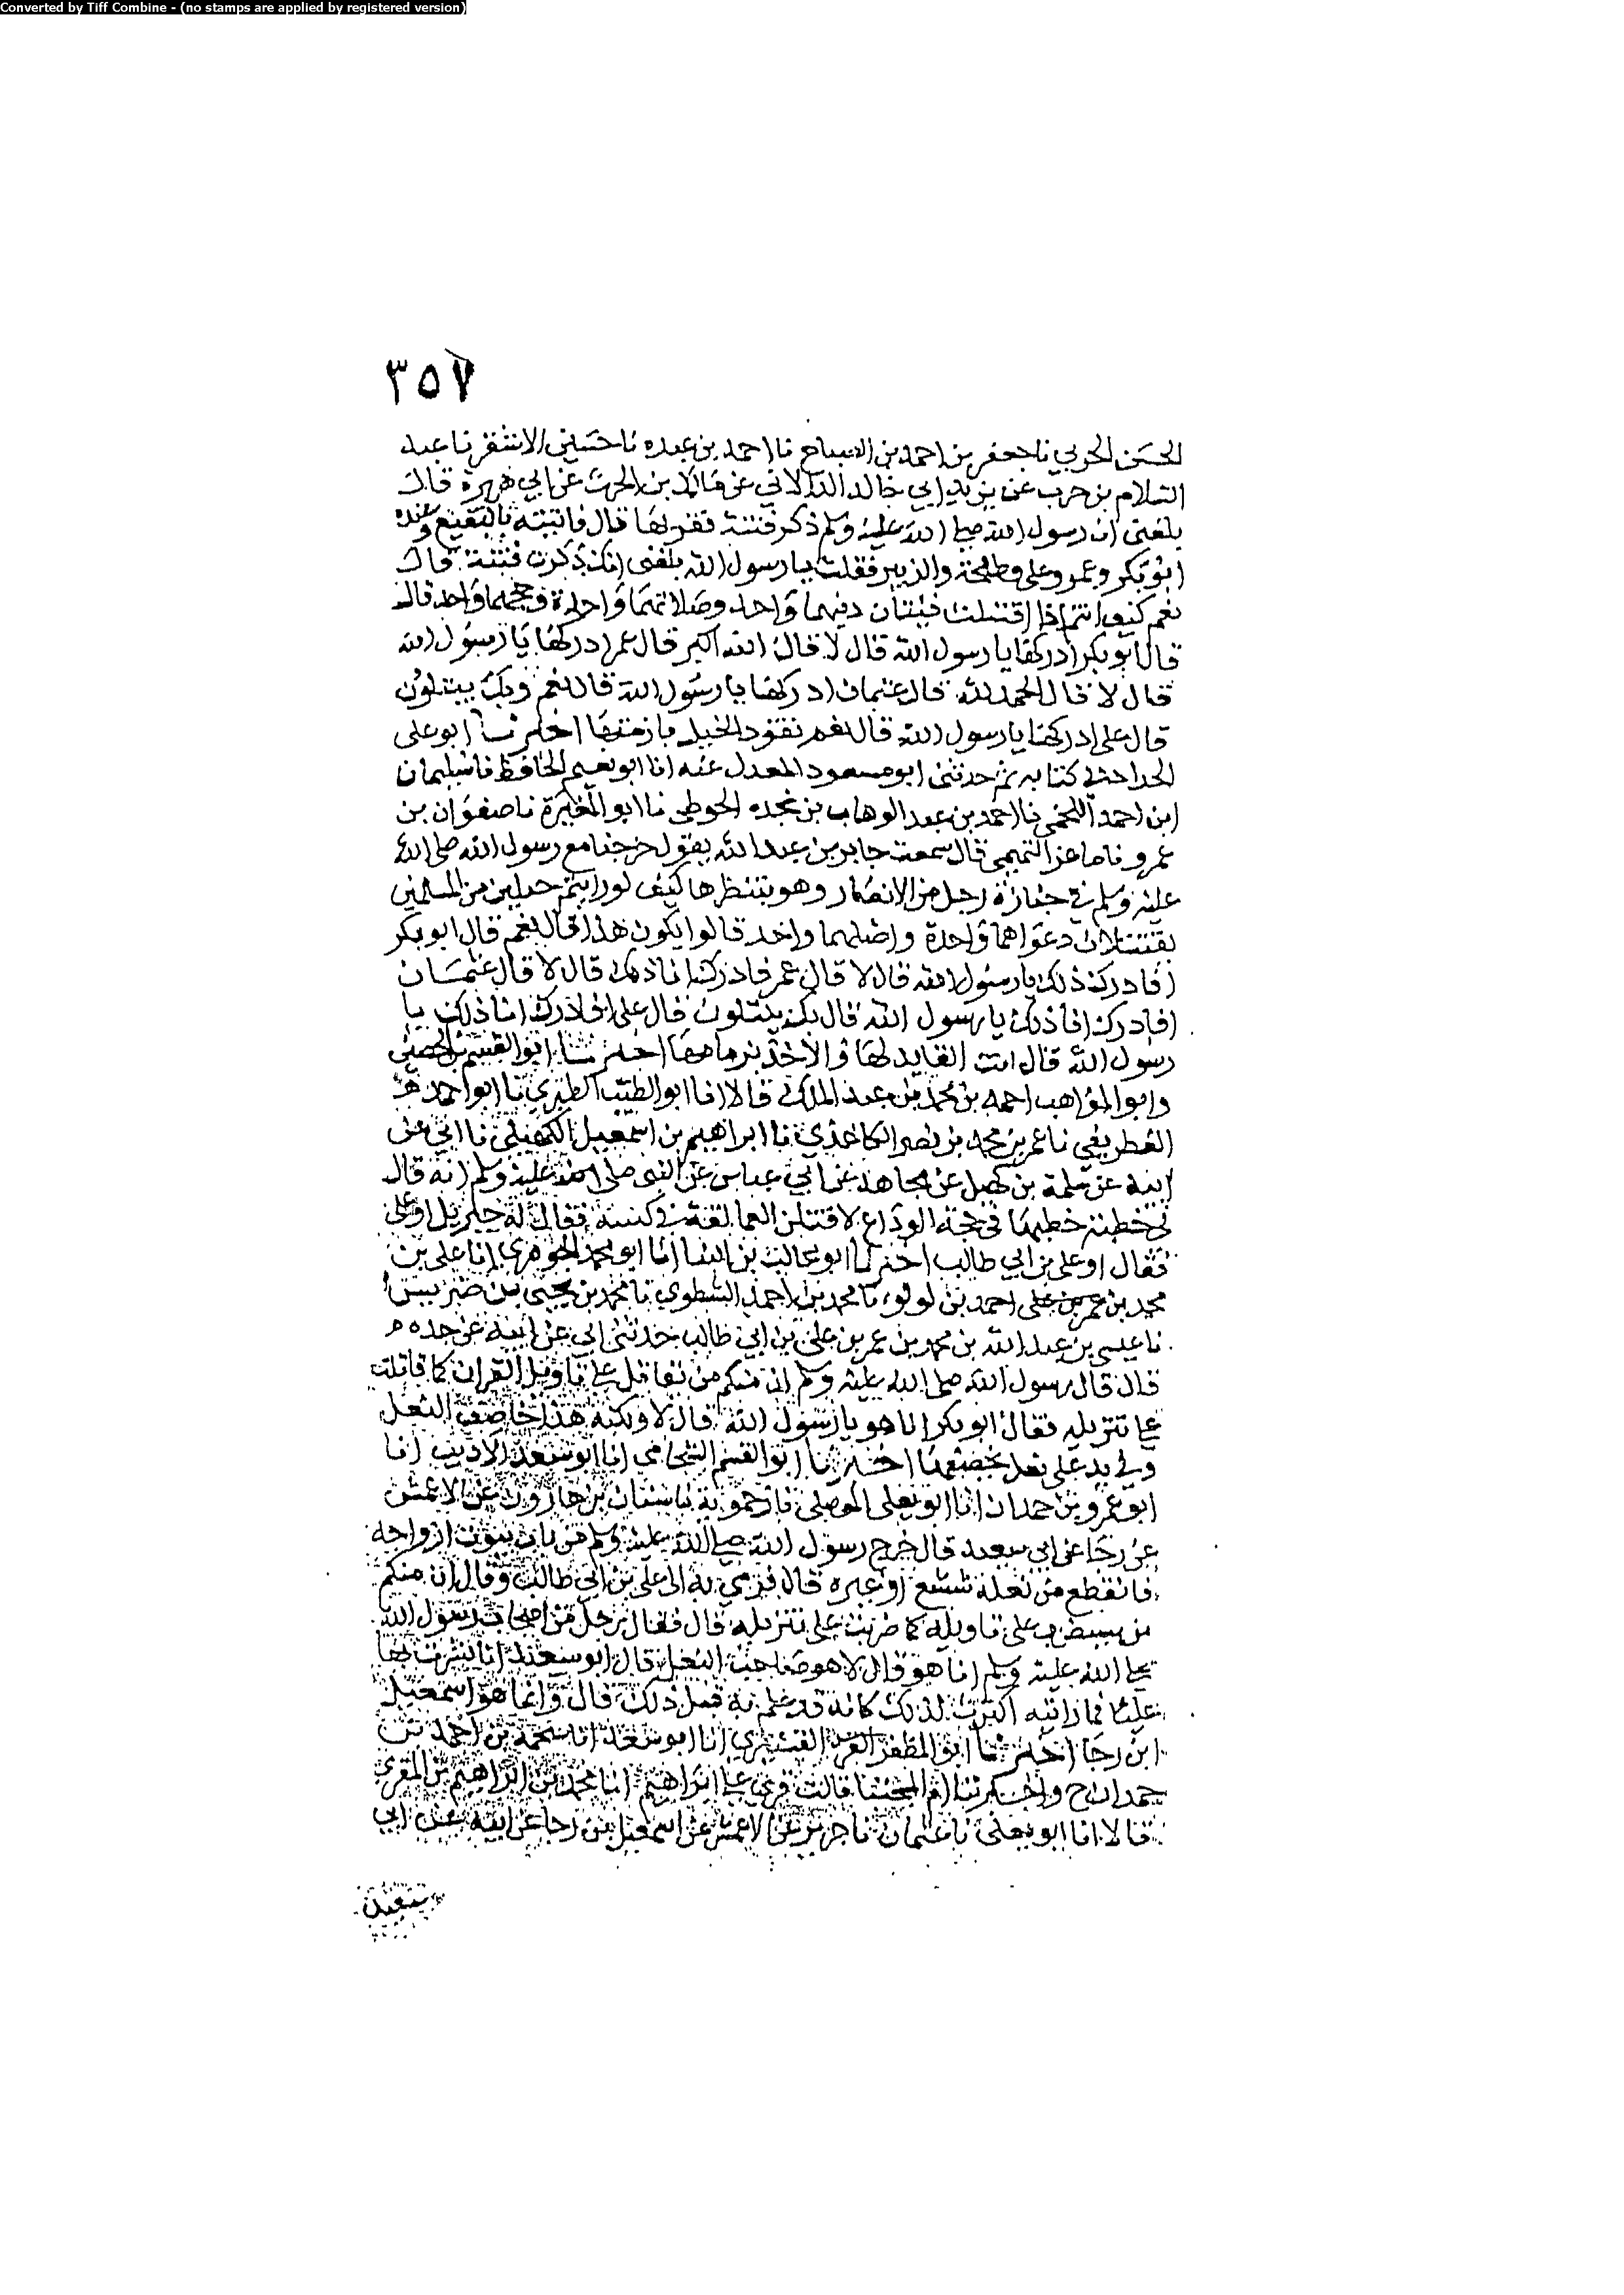 Converted by Tiff Combine - (no stamps are applied by registered version)
٣٥٧
الحسن الحربي نا جعفر بن احمد بن الصباح نا احمد بن عبده نا حسين الاشقر نا عبد
السلام بن حرب عن يزيد ابي خالد الدالاني عن بن الحرث عن ابي هريرة قال
بلغني ان رسول الله صلى الله عليه وسلم ذكر فتنة فقربها قال فاتيته بالبقيع وعنده
ابو بكر وعمر وعلي وطلحة والزبير فقلت يا رسول الله بلغني انك ذكرت فتنة قال
نعم كيف انتم اذا اقتتلت فئتان دينهما واحد وصلاتهما واحدة وحجهما واحد قال
قال ابو بكر ادركها يا رسول الله قال لا قال الله اكبر قال عمر ادركها يا رسول الله
قال لا قال الحمد لله قال عثمان ادركها يا رسول الله قال نعم وبك يبتلون
قال علي ادركها يا رسول الله قال نعم تقود الخيل بازمتها اخبرنا ابو علي
الحداد في كتابه ثم حدثني ابو مسعود المعدل عنه انا ابو نعيم الحافظ نا سليمان
ابن احمد اللخمي نا احمد بن عبد الوهاب بن نجده الحوطي نا ابو المغيرة نا صفوان بن
عمرو نا ماعز التميمي قال سمعت جابر بن عبد الله يقول خرجنا مع رسول الله صلى الله
عليه وسلم في جنازة رجل من الانصار وهو ينتظرها كيف لو رايتم من المسلمين
يقتتلان دعواهما واحدة واصلهما واحد قالوا يكون هذا قال نعم قال ابو بكر
افادرك ذلك يا رسول الله قال لا قال عمر فادركنا ذلك قال لا قال عثمان
افادرك انا ذلك يا رسول الله قال بك يبتلون قال علي افادرك انا ذلك يا
رسول الله قال انت القايد لها والاخذ بزمامها اخبرنا ابو القسم بن الحصين
وابو المواهب احمد بن محمد بن عبد الملك قالا انا ابو الطيب الطبري نا ابو احمد
الغطريفي نا عمر بن محمد بن نصر الكاغذي نا ابراهيم بن اسمعيل الكهيلي نا ابي عن
ابيه عن سلمة بن كهيل عن مجاهد عن ابي عباس عن النبي صلى الله عليه وسلم انه قال
في خطبته خطبها في حجة الوداع لاقتلن العمالقة في كتيبة فقال له جبريل او علي
فقال او علي بن ابي طالب اخبرنا ابو غالب بن البنا انا ابو محمد الجوهري انا علي بن
محمد بن احمد بن لولو نا محمد بن احمد الشطوي نا محمد بن يحيى بن ضريس
نا عيسى بن عبد الله بن محمد بن عمر بن علي بن ابي طالب حدثني ابي عن ابيه عن جده
قال قال رسول الله صلى الله عليه وسلم ان منكم من يقاتل على تاويل القران كما قاتلت
على تنزيله فقال ابو بكر انا هو يا رسول الله قال لا ولكنه هذا خاصف النعل
وفي يد علي نعل يخصفها اخبرنا ابو القسم الشحامي انا ابو سعد الاديب انا
ابو عمرو بن حمدان انا ابو يعلى الموصلي نا زحمويه نا سنان بن هارون عن الاعمش
عن رجا عن ابي سعيد قال خرج رسول الله صلى الله عليه وسلم من باب بيوت ازواجه
فانقطع من نعله شسع او غيره قال فرمي به الى علي بن ابي طالب وقال ان منكم
من على تاويله كما ضربت على تنزيله قال فقال رجل من اصحاب رسول الله
صلى الله عليه وسلم انا هو قال لا هو صاحب النعل قال ابو سعيد انا بشرت بها
عليا فما رايته اكترث لذلك كانه قد علم به قبل ذلك قال وانما هو اسمعيل
ابن رجا اخبرنا ابو المظفر القشيري انا ابو سعد انا محمد بن احمد بن
حمدان ح واخبرتنا ام المجتبا قالت قرئ على ابراهيم انا محمد بن ابراهيم بن المقري
قالا انا ابو يعلى نا عثمان نا جرير عن الاعمش عن اسمعيل بن رجا عن ابيه عن ابي
سعيد